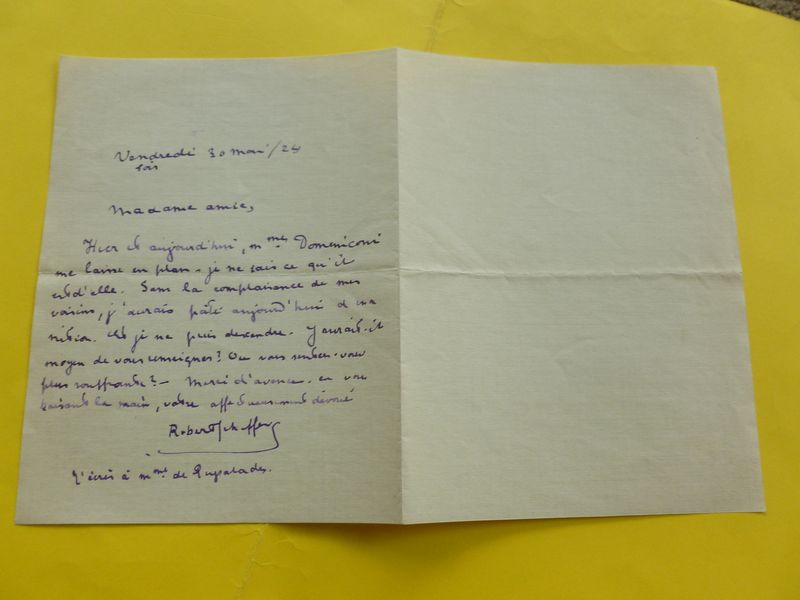 Vendredi 30 mai/24
soir
Madame amie,
Hier et aujourd'hui, Mme Domeniconi
me laisse en plan. je ne sais ce qu'il
est d'elle. Sans la complaisance de mes
voisins, j'aurais pâti aujourd'hui d'ina
nition. Et je ne puis descendre. Y aurait-il
moyen de vous renseigner? Ou vous sentez-vous
plus souffrante? — Merci d'avance. en vous
baisant la main, votre affectueusement dévoué
Robert Scheffer
J'écris à Mme de